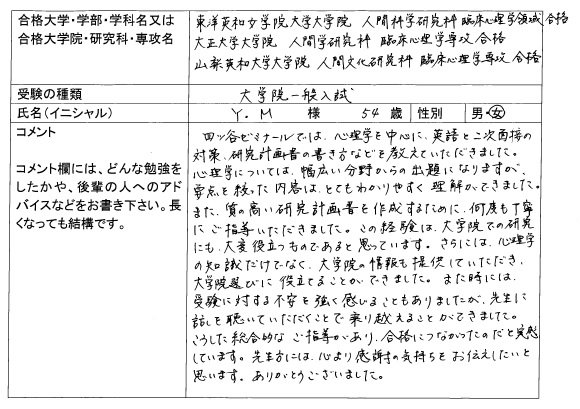 合格大学・学部・学科名又は
合格大学院・研究科・専攻名
東洋英和女学院大学大学院 人間科学研究科 臨床心理学領域 合格
大正大学大学院 人間学研究科 臨床心理学専攻 合格
山梨英和大学大学院 人間文化研究科 臨床心理学専攻 合格
受験の種類
大学院一般入試
氏名(イニシャル)
Y.M 様 54 歳 性別 男・女
コメント
コメント欄には、どんな勉強を
したかや、後輩の人へのアド
バイスなどをお書き下さい。長
くなっても結構です。
四ツ谷ゼミナールでは、心理学を中心に、英語と二次面接の
対策、研究計画書の書き方などを教えていただきました。
心理学については、幅広い分野からの出題になりますが、
要点を絞った内容は、とてもわかりやすく理解ができました。
また、質の高い研究計画書を作成するために、何度も丁寧
にご指導いただきました。この経験は、大学院での研究
にも、大変役立つものであると思っています。さらには、心理学
の知識だけでなく、大学院の情報も提供していただき、
大学院選びに役立てることができました。また時には、
受験に対する不安を強く感じることもありましたが、先生に
話しを聴いていただくことで乗り越えることができました。
こうした総合的なご指導があり、合格につながったのだと実感
しています。先生方には、心より感謝の気持ちをお伝えしたいと
思います。ありがとうございました。